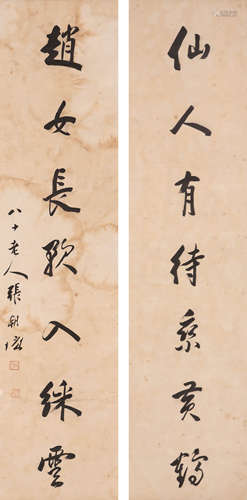 仙人有待乘黄鹤
趙女長歌入綵雲
八十老人張